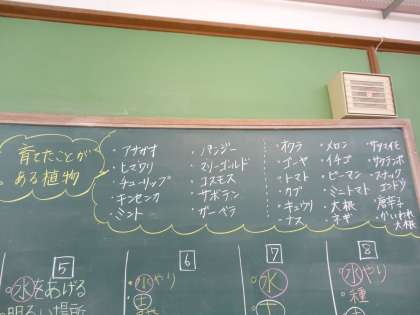 育てたことが
ある植物
・アサガオ
・ヒマワリ
・チューリップ
・キンセンカ
・ミント
・パンジー
・マリーゴールド
・コスモス
・サボテン
・ガーベラ
・オクラ
・ゴーヤ
・トマト
・カブ
・キュウリ
・ナス
・メロン
・イチゴ
・ピーマン
・ミニトマト
・大根
・ネギ
・サツマイモ
・サクランボ
・スナップ
エンドウ
・唐辛子
・かいわれ
大根
5
水をあげる
明るい場所
6
・水やり
・土
7
・水
・土
8
・水やり
・種
・土